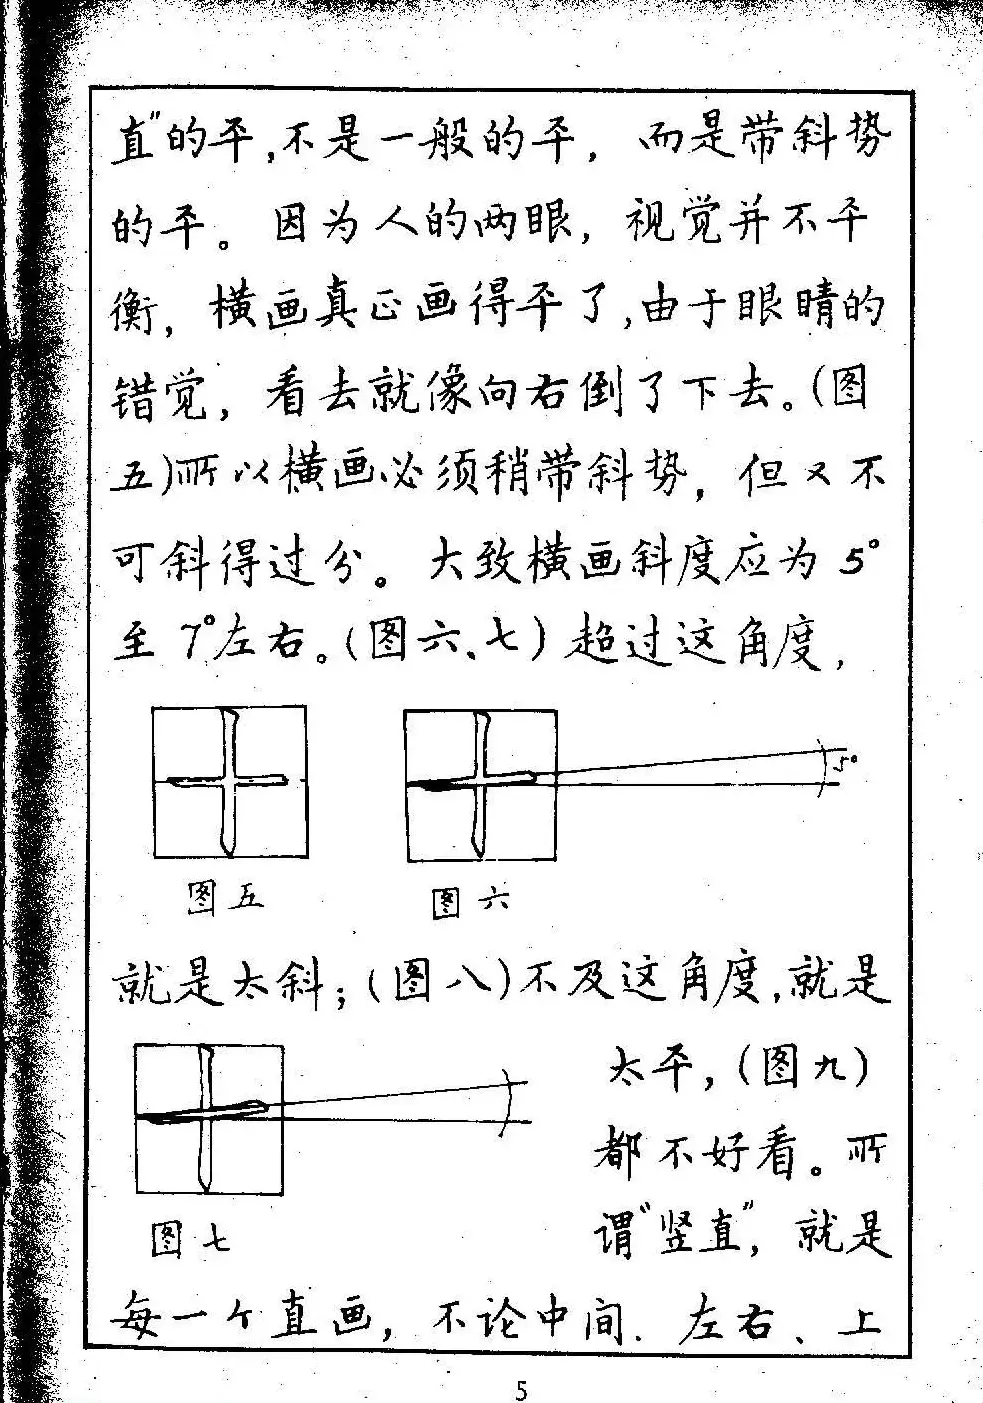 直”的平,不是一般的平，而是带斜势
的平。因为人的两眼，视觉并不平
衡，横画真正画得平了,由于眼睛的
错觉，看去就像向右倒了下去。(图
五)所以横画必须稍带斜势，但又不
可斜得过分。大致横画斜度应为5°
至7°左右。(图六、七)超过这角度，
5°
图五
图六
就是太斜；(图八)不及这角度,就是
太平，(图九)
都不好看。所
谓“竖直”，就是
图七
每一个直画，不论中间.左右、上
5